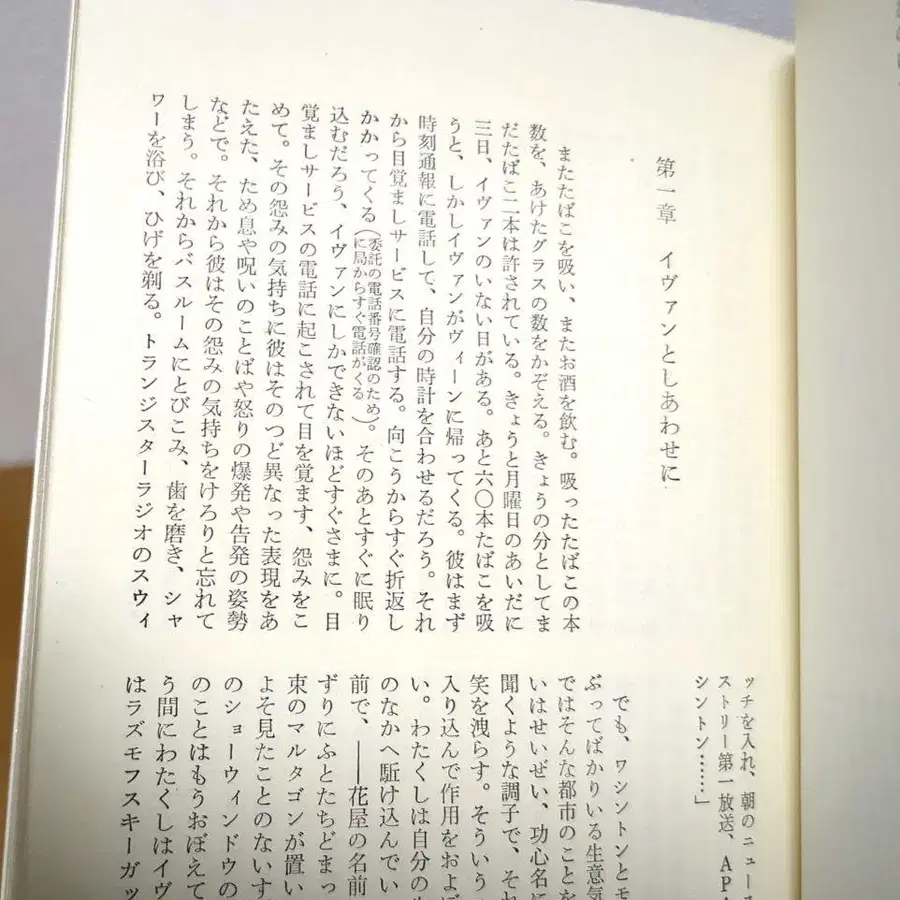 第一章　イヴァンとしあわせに
またたばこを吸い、またお酒を飲む。吸ったたばこの本
数を、あけたグラスの数をかぞえる。きょうの分としてま
だたばこ二本は許されている。きょうと月曜日のあいだに
三日、イヴァンのいない日がある。あと六〇本たばこを吸
うと、しかしイヴァンがヴィーンに帰ってくる。彼はまず
時刻通報に電話して、自分の時計を合わせるだろう。それ
から目覚ましサービスに電話する。向こうからすぐ折返し
かかってくる（委託の電話番号確認のために局からすぐ電話がくる）。そのあとすぐに眠り
込むだろう、イヴァンにしかできないほどすぐさまに。目
覚ましサービスの電話に起こされて目を覚ます、怨みをこ
めて。その怨みの気持ちに彼はそのつど異なった表現をあ
たえた、ため息や呪いのことばや怒りの爆発や告発の姿勢
などで。それから彼はその怨みの気持ちをけろりと忘れて
しまう。それからバスルームにとびこみ、歯を磨き、シャ
ワーを浴び、ひげを剃る。トランジスターラジオのスウィ
ッチを入れ、朝のニュース
ストリー第一放送、APA
シントン……」
でも、ワシントンとモ
ぶってばかりいる生意気
ではそんな都市のことを
いはせいぜい、功心名に
聞くような調子で、それ
笑を洩らす。そういう
入り込んで作用をおよぼ
い。わたくしは自分の
のなかへ駈け込んでい
前で、――花屋の名前
ずりにふとたちどまっ
束のマルタゴンが置い
よそ見たことのないす
のショーウィンドウの
のことはもうおぼえて
う間にわたくしはイヴ
はラズモフスキーガッ